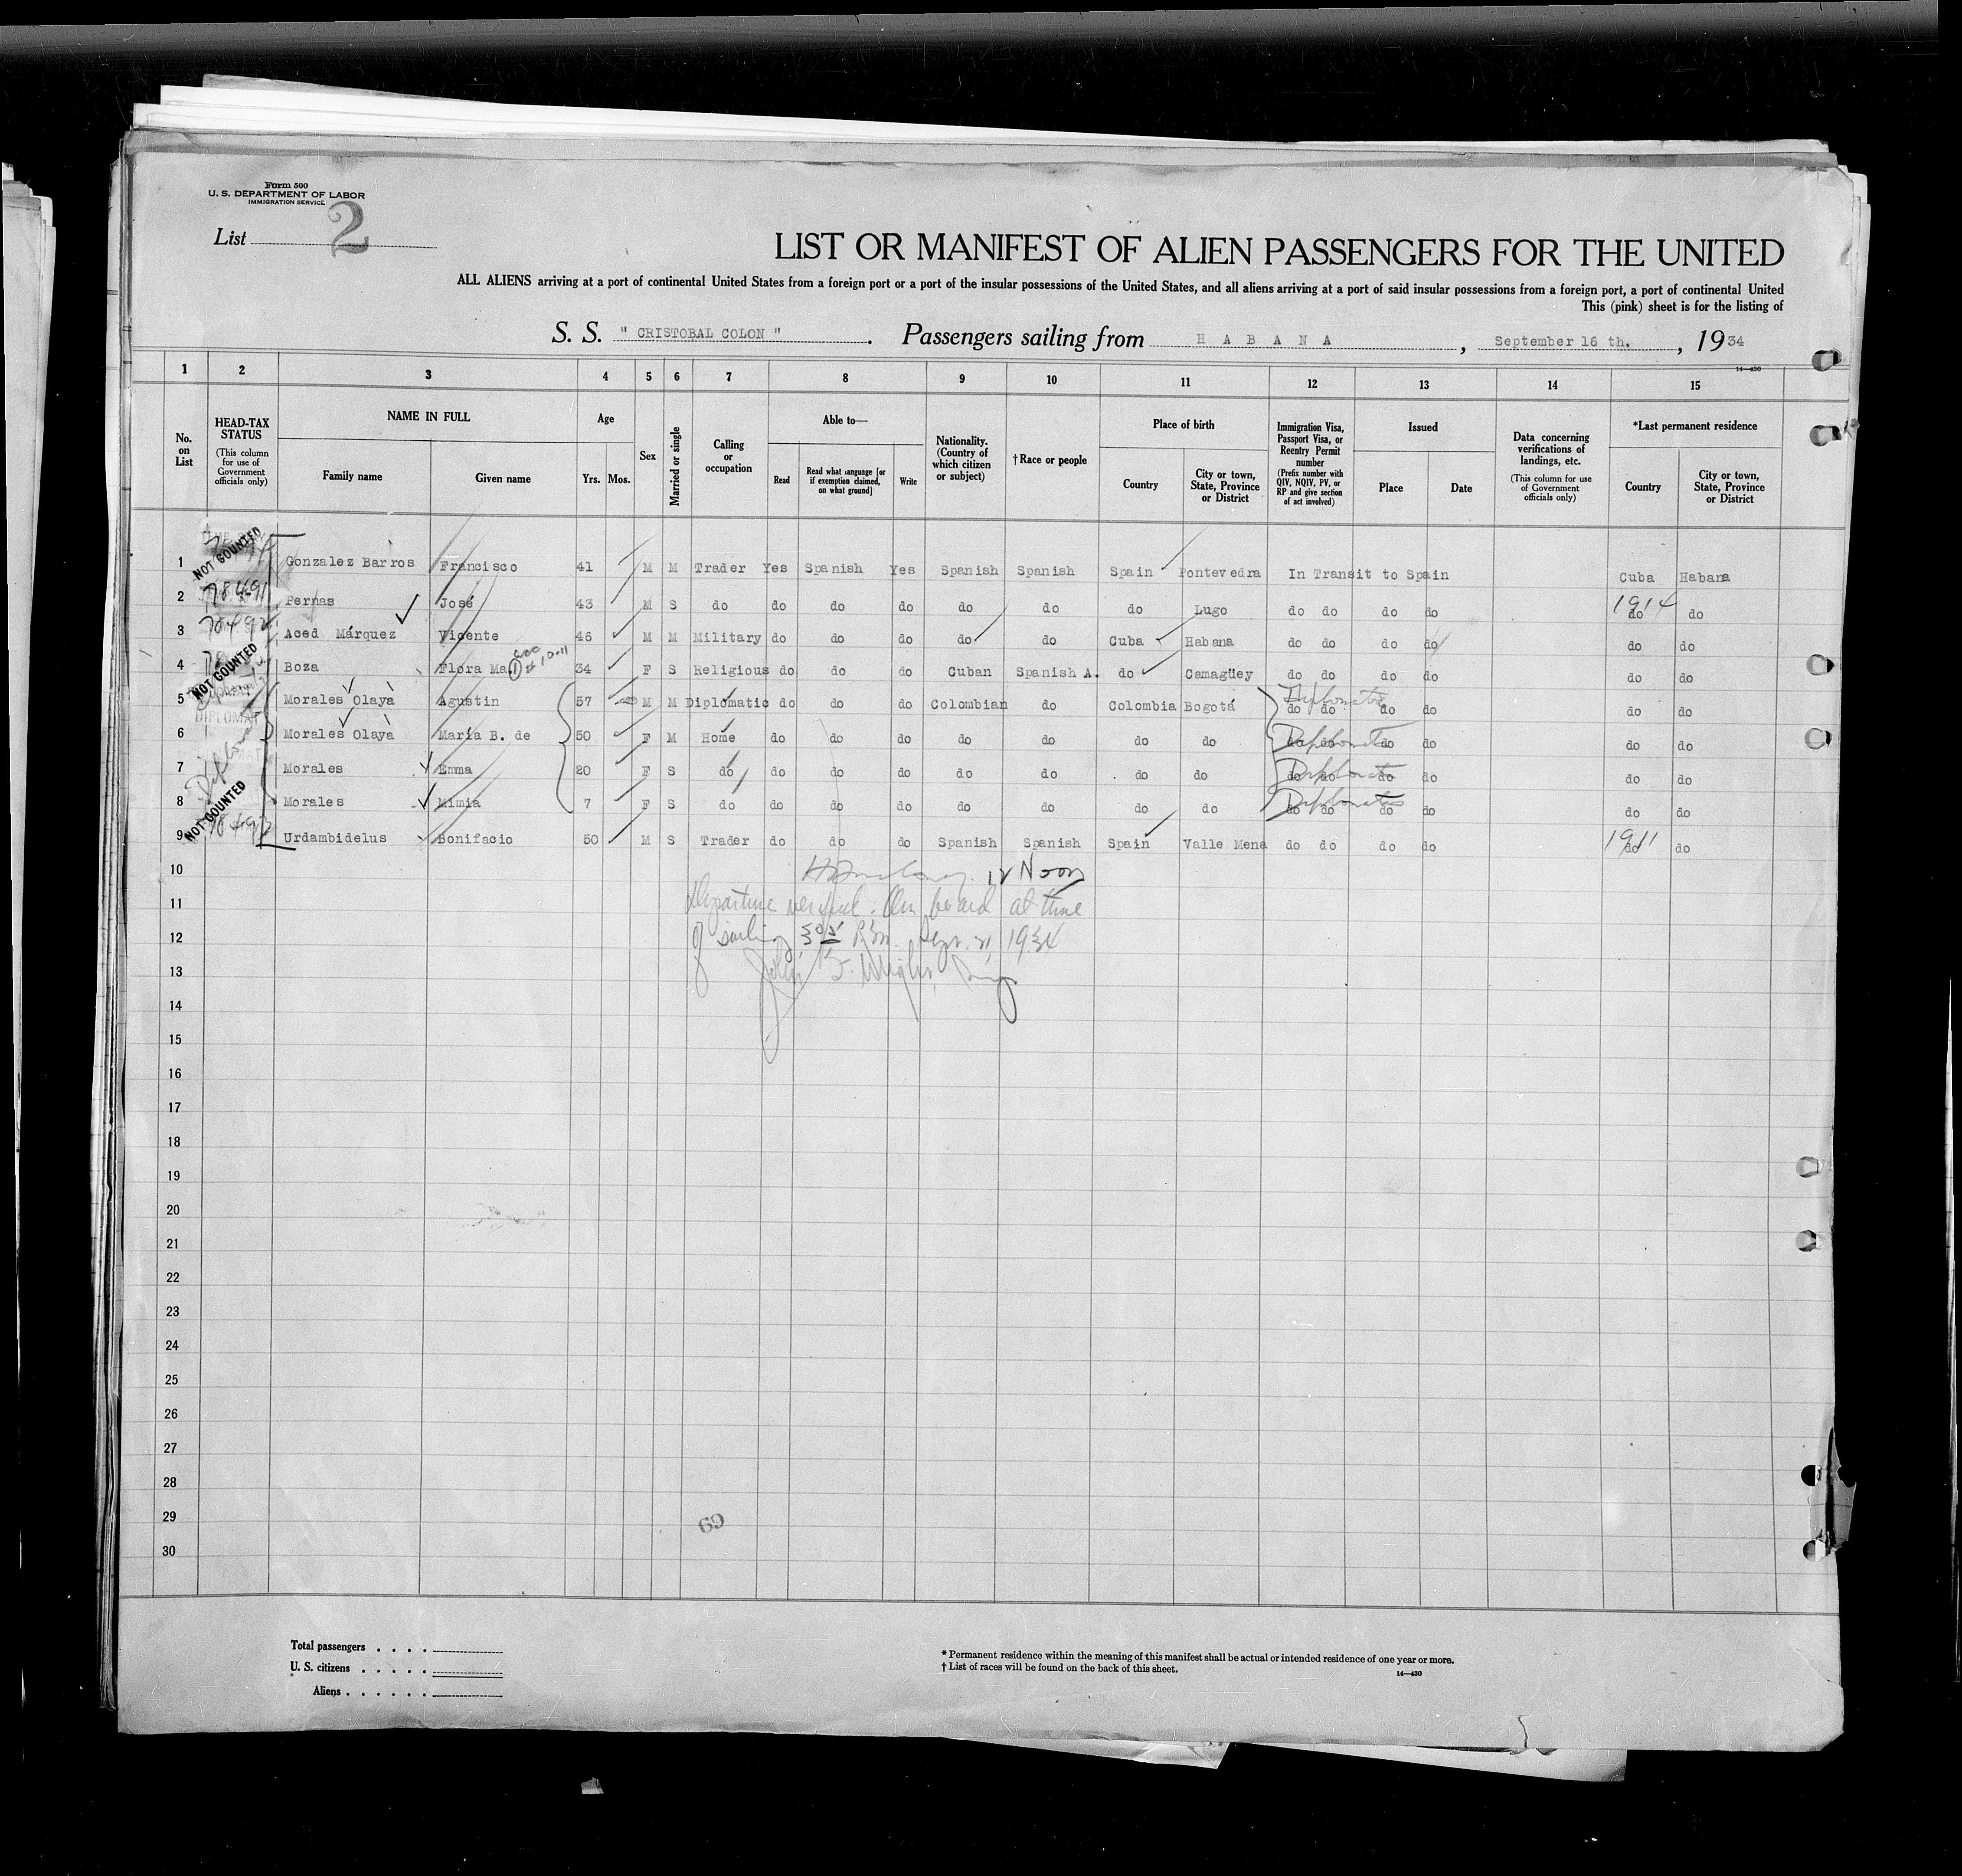 Form 500
U. S. DEPARTMENT OF LABOR
IMMIGRATION SERVICE
List 2
LIST OR MANIFEST OF ALIEN PASSENGERS FOR THE UNITED
ALL ALIENS arriving at a port of continental United States from a foreign port or a port of the insular possessions of the United States, and all aliens arriving at a port of said insular possessions from a foreign port, a port of continental United
This (pink) sheet is for the listing of
S. S. " CRISTOBAL COLON " . Passengers sailing from H A B A N A , September 16 th. , 19 34
14—430
1 2 3 4 5 6 7 8 9 10 11 12 13 14 15
No. on List
HEAD-TAX STATUS (This column for use of Government officials only)
NAME IN FULL
Family name Given name
Age
Yrs. Mos.
Sex
Married or single
Calling or occupation
Able to—
Read Read what language [or if exemption claimed, on what ground] Write
Nationality. (Country of which citizen or subject)
†Race or people
Place of birth
Country City or town, State, Province or District
Immigration Visa, Passport Visa, or Reentry Permit number (Prefix number with QIV, NQIV, PV, or RP and give section of act involved)
Issued
Place Date
Data concerning verifications of landings, etc. (This column for use of Government officials only)
*Last permanent residence
Country City or town, State, Province or District
NOT COUNTED
1 Gonzalez Barros Francisco 41 M M Trader Yes Spanish Yes Spanish Spanish Spain Pontevedra In Transit to Spain Cuba Habana
2 Pernas José 43 M S do do do do do do do Lugo do do do do 1914 do do
3 Aced Márquez Vicente 46 M M Military do do do do do Cuba Habana do do do do do do
NOT COUNTED
4 Boza Flora Ma. 34 F S Religious do do do Cuban Spanish A. do Camagüey do do do do do do
5 Morales Olaya Agustin 57 M M Diplomatic do do do Colombian do Colombia Bogotá do do do do do do
DIPLOMAT
6 Morales Olaya María B. de 50 F M Home do do do do do do do do do do do do do
7 Morales Emma 20 F S do do do do do do do do do do do do do do
8 Morales Mimia 7 F S do do do do do do do do do do do do do do
NOT COUNTED
9 Urdambidelus Bonifacio 50 M S Trader do do do Spanish Spanish Spain Valle Mena do do do do 1911 do do
10 12 Noon
11 Departure verified. On board at time
12 of sailing Sept. 21 1934
13 John
14
15
16
17
18
19
20
21
22
23
24
25
26
27
28
29
69
30
Total passengers . . . .
U. S. citizens . . . . .
Aliens . . . . . .
* Permanent residence within the meaning of this manifest shall be actual or intended residence of one year or more.
† List of races will be found on the back of this sheet.
14—430